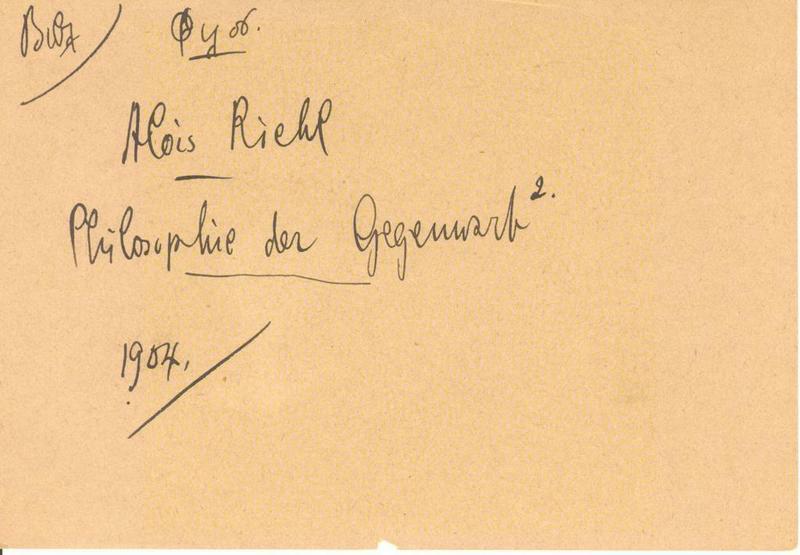 Alois Riehl
Philosophie der Gegenwart 2.
1904.